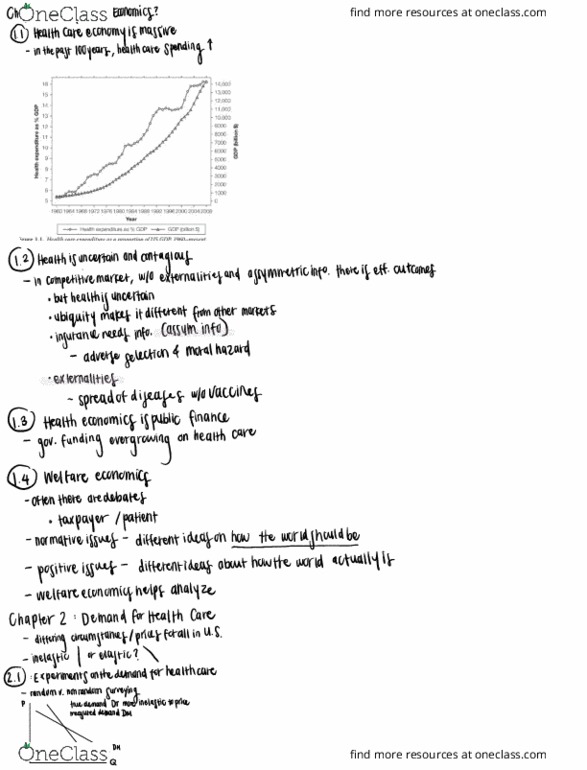 Ch OneClass Economics?
find more resources at oneclass.com
1.1 Health care economy is massive
- in the past 100 years, health care spending ↑
Health expenditure as % GDP
16
15
14
13
12
11
10
9
8
7
6
5
14,000
13,000
12,000
11,000
10,000
9000
8000
7000
6000
5000
4000
3000
2000
1000
0
GDP (billion $)
1960 1964 1968 1972 1976 1980 1984 1988 1992 1996 2000 2004 2008
Year
Health expenditure as % GDP GDP (billion $)
Health care expenditure as a proportion of US GDP, 1960-present
1.2 Health is uncertain and contagious
- in competitive market, w/o externalities and assymmetric info. there is eff. outcomes
• but health is uncertain
• ubiquity makes it different from other markets
• insurance needs info. (assym info)
- adverse selection & moral hazard
• externalities
~ spread of diseases w/o vaccines
1.3 Health economics is public finance
- gov. funding evergrowing on health care
1.4 Welfare economics
- often there are debates
• taxpayer / patient
- normative issues - different ideas on how the world should be
- positive issues - different ideas about how the world actually is
- welfare economics helps analyze
Chapter 2 : Demand for Health Care
- differing circumstances / prices for all in U.S.
- inelastic | or elastic? \
2.1 : Experiments on the demand for healthcare
- random v. nonrandom surveying
P
true demand Dr more inelastic to price
measured demand Dm
DM
Q
OneClass
find more resources at oneclass.com